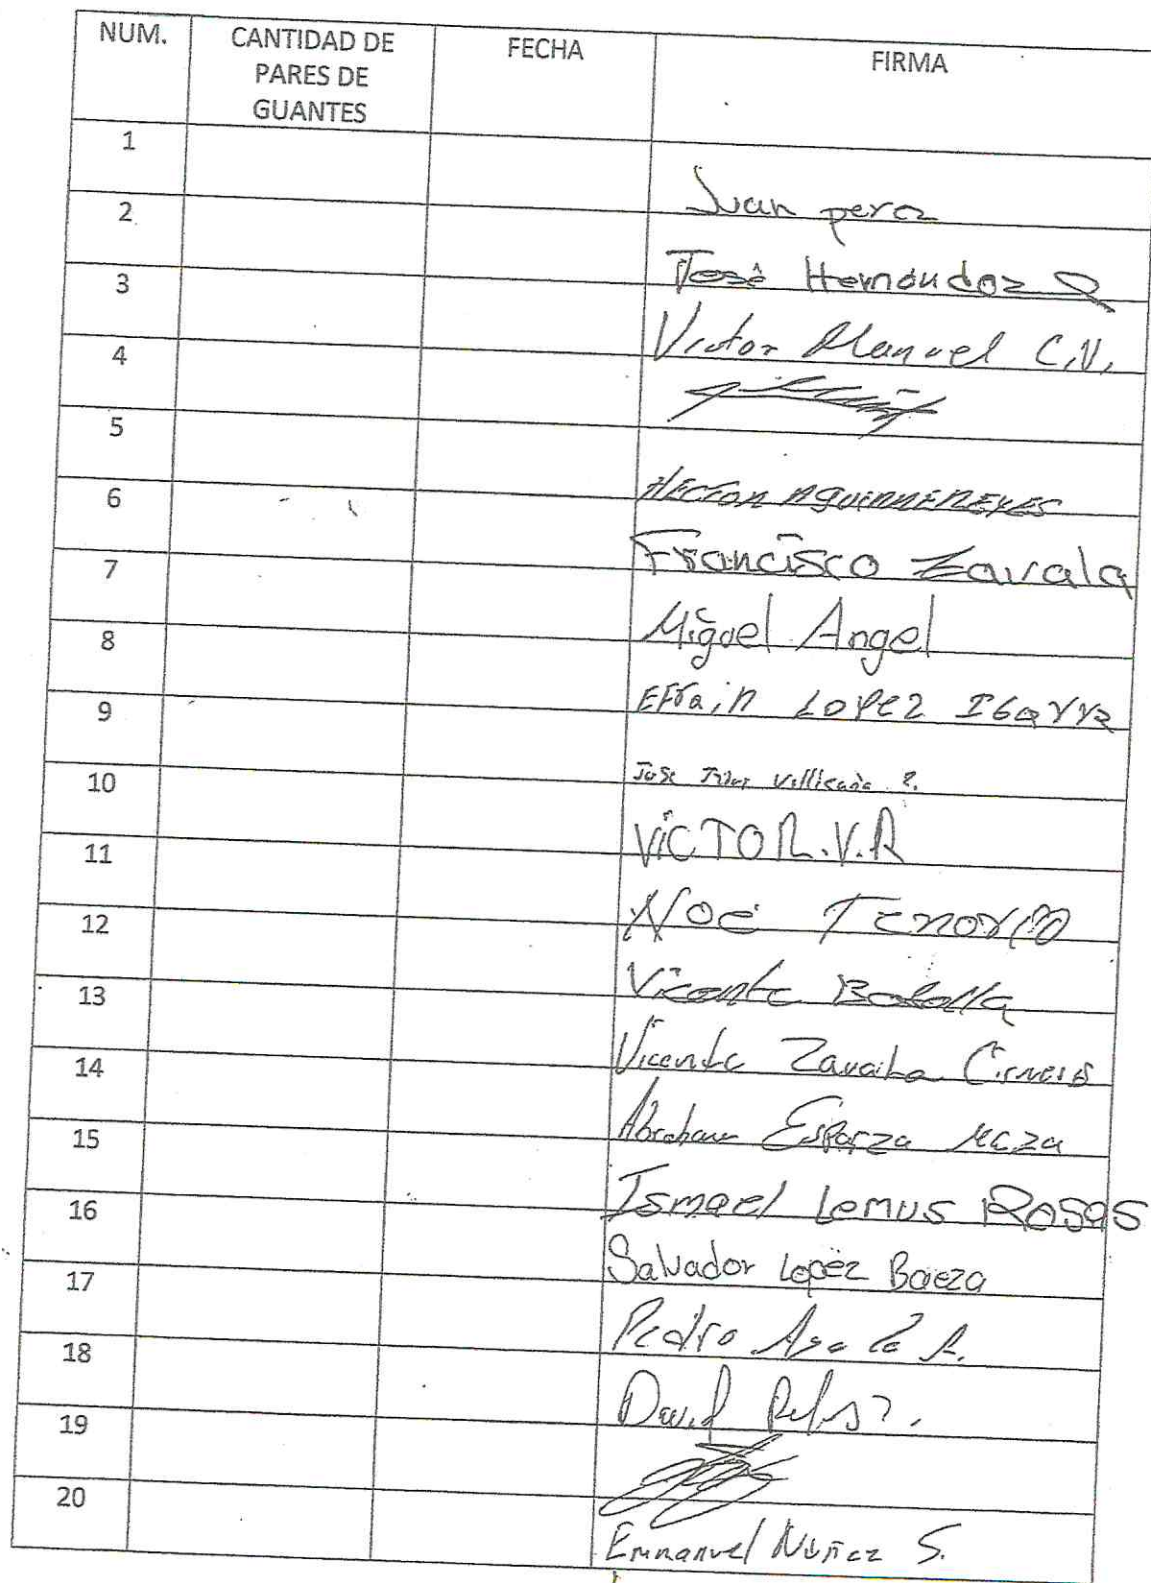 NUM.
CANTIDAD DE
PARES DE
GUANTES
FECHA
FIRMA
1
Juan perez
2
José Hernández
3
Victor Manuel C.V.
4
5
HECTOR AGUIRRE REYES
6
Francisco Zavala
7
Miguel Angel
8
EFrain LOPEZ
9
Jose
10
VICTOR.V.R
11
NOE TENORIO
12
Vicente
13
Vicente Cisneros
14
Abraham Esparza Meza
15
Ismael Lemus Rosas
16
Salvador Lopez Baeza
17
Pedro Ayala A.
18
David
19
20
Emmanuel Nuñez S.